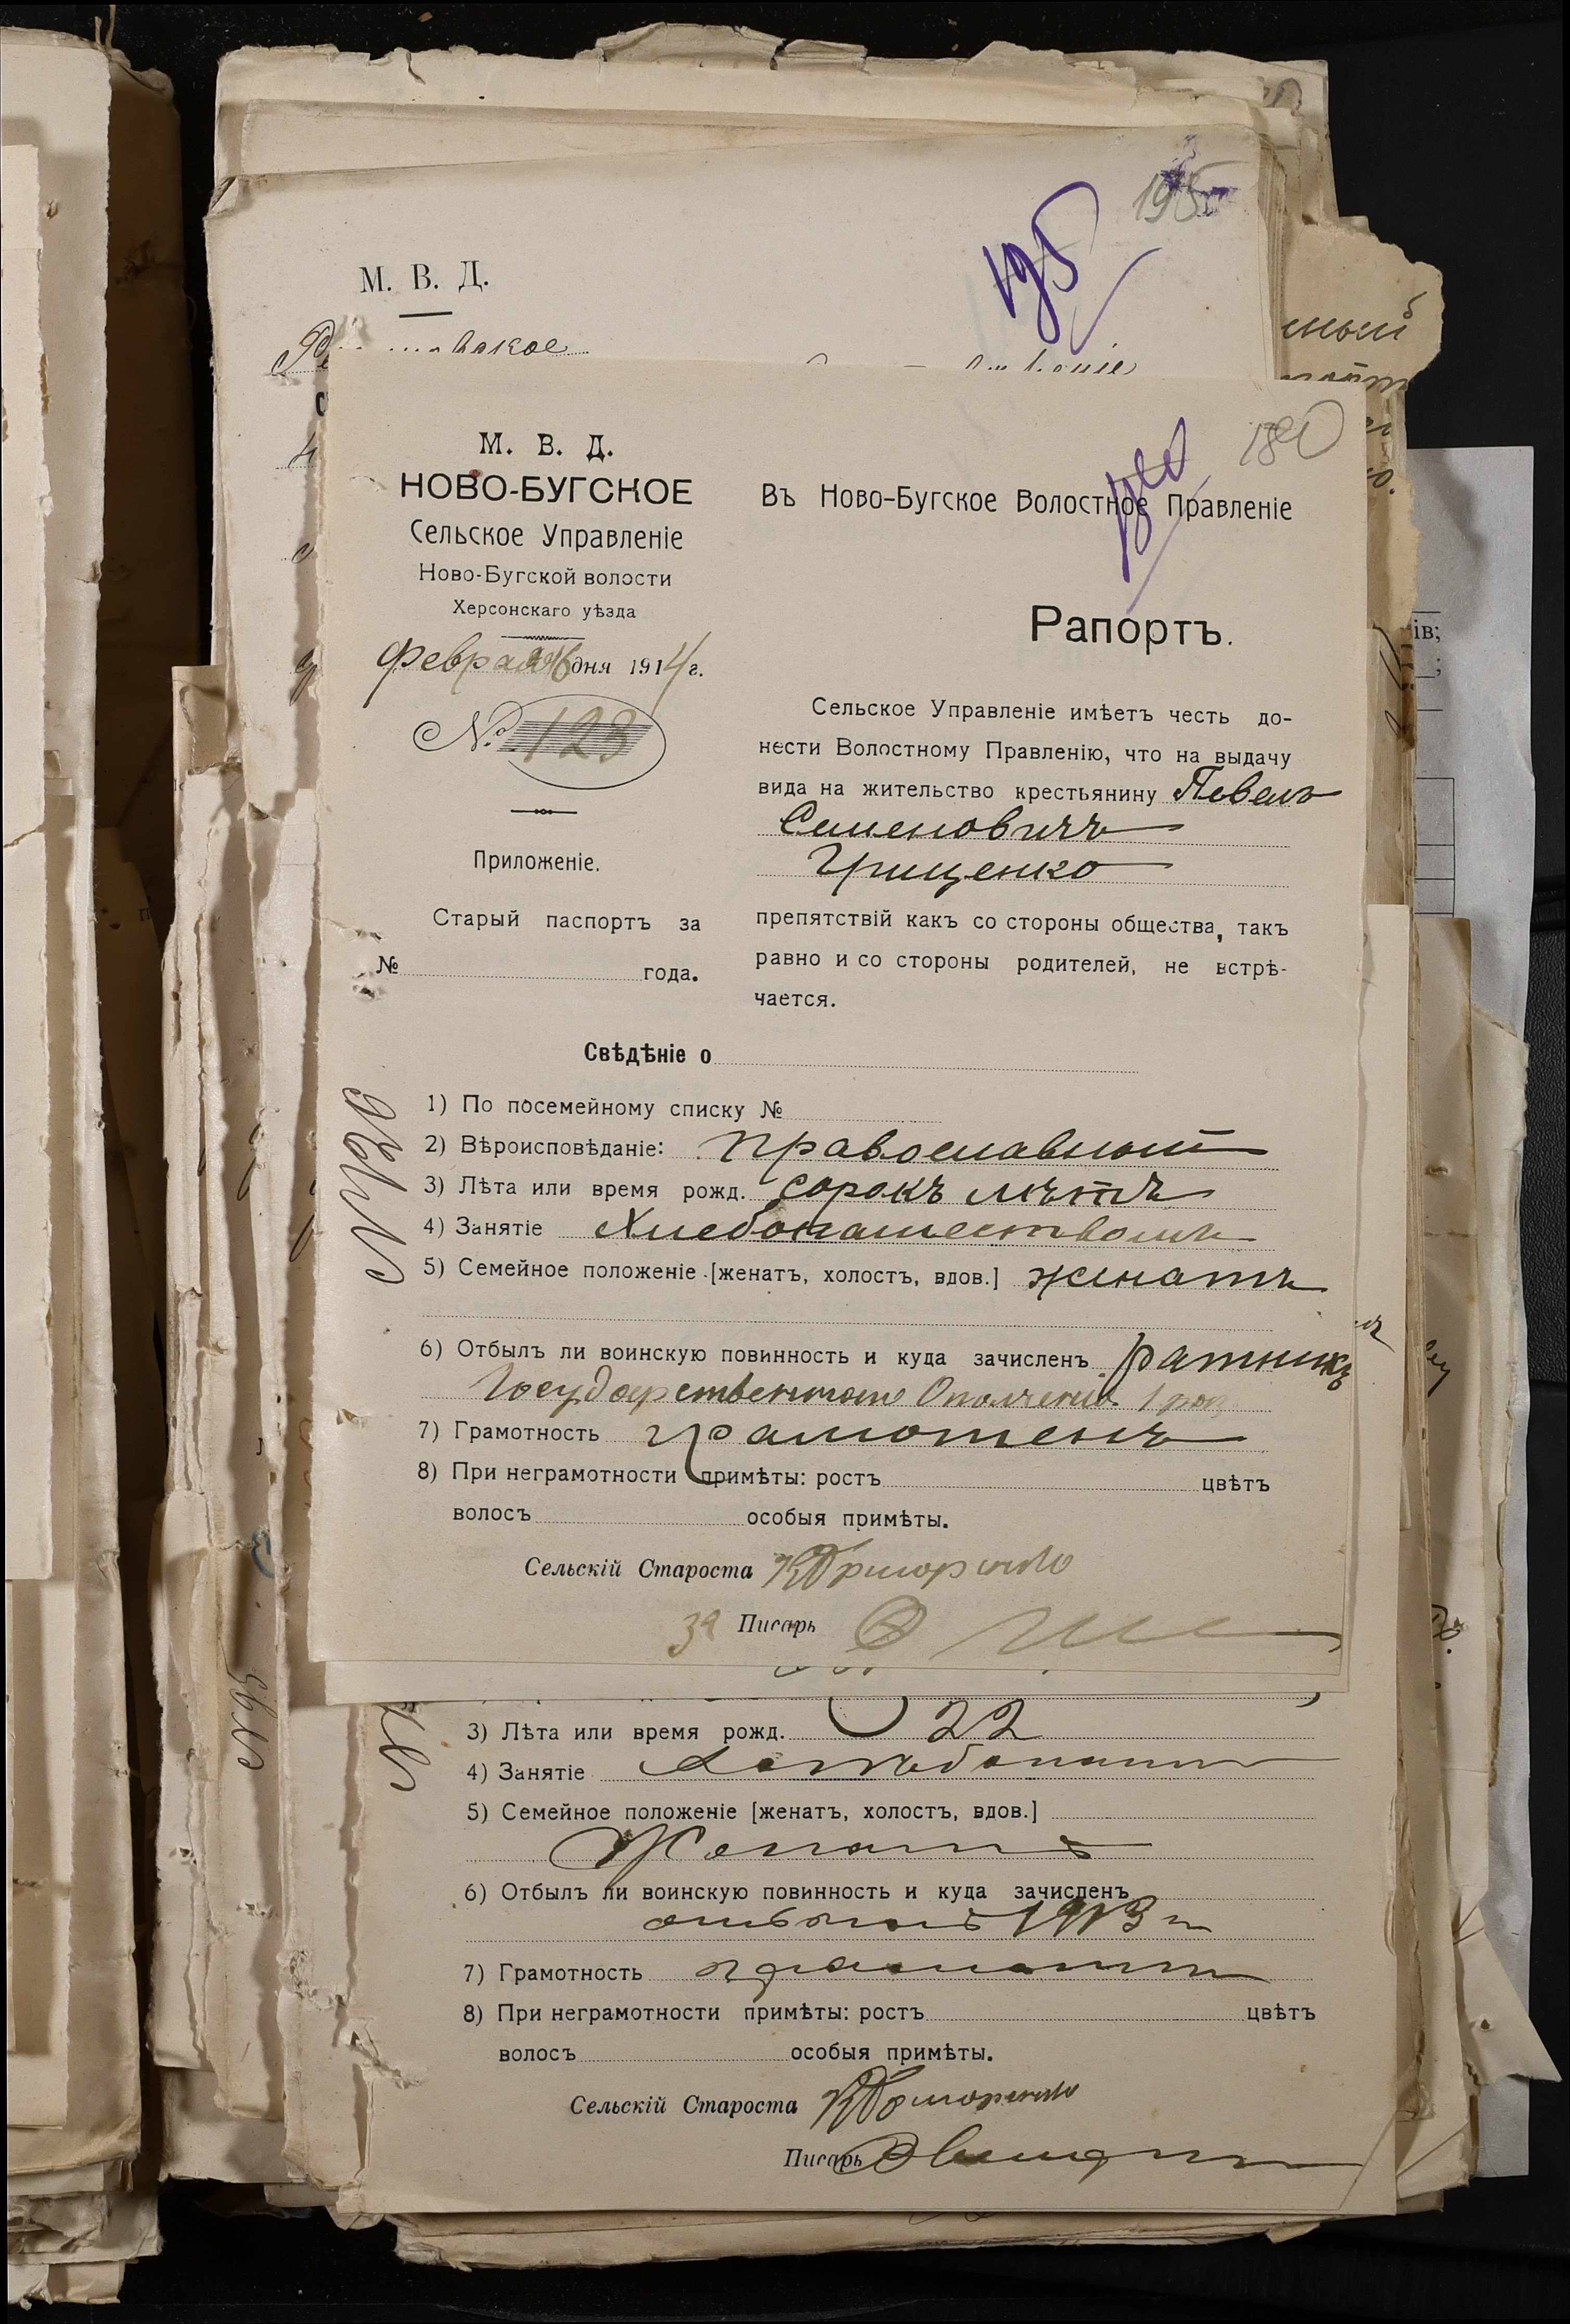 195
195
М. В. Д.
180
180
М. В. Д.
НОВО-БУГСКОЕ
Сельское Управленіе
Ново-Бугской волости
Херсонскаго уѣзда
Февраля 16 дня 1914 г.
№ 123
Приложеніе.
Старый паспортъ за
№ года.
Въ Ново-Бугское Волостное Правленіе
Рапортъ.
Сельское Управленіе имѣетъ честь до-
нести Волостному Правленію, что на выдачу
вида на жительство крестьянину Павелъ
Семеновичъ
Грищенко
препятствій какъ со стороны общества, такъ
равно и со стороны родителей, не встрѣ-
чается.
Свѣдѣніе о
1) По посемейному списку №
2) Вѣроисповѣданіе: православный
3) Лѣта или время рожд. сорокъ лѣтъ
4) Занятіе Хлебопашествомъ
5) Семейное положеніе [женатъ, холостъ, вдов.] женатъ
6) Отбылъ ли воинскую повинность и куда зачисленъ ратникъ
Государственнаго Ополченія 1 раз
7) Грамотность грамотенъ
8) При неграмотности примѣты: ростъ цвѣтъ
волосъ особыя примѣты.
Сельскій Староста
За Писарь
3) Лѣта или время рожд. 22
4) Занятіе
5) Семейное положеніе [женатъ, холостъ, вдов.]
Женатъ
6) Отбылъ ли воинскую повинность и куда зачисленъ
1913 г
7) Грамотность
8) При неграмотности примѣты: ростъ цвѣтъ
волосъ особыя примѣты.
Сельскій Староста
Писарь
№95